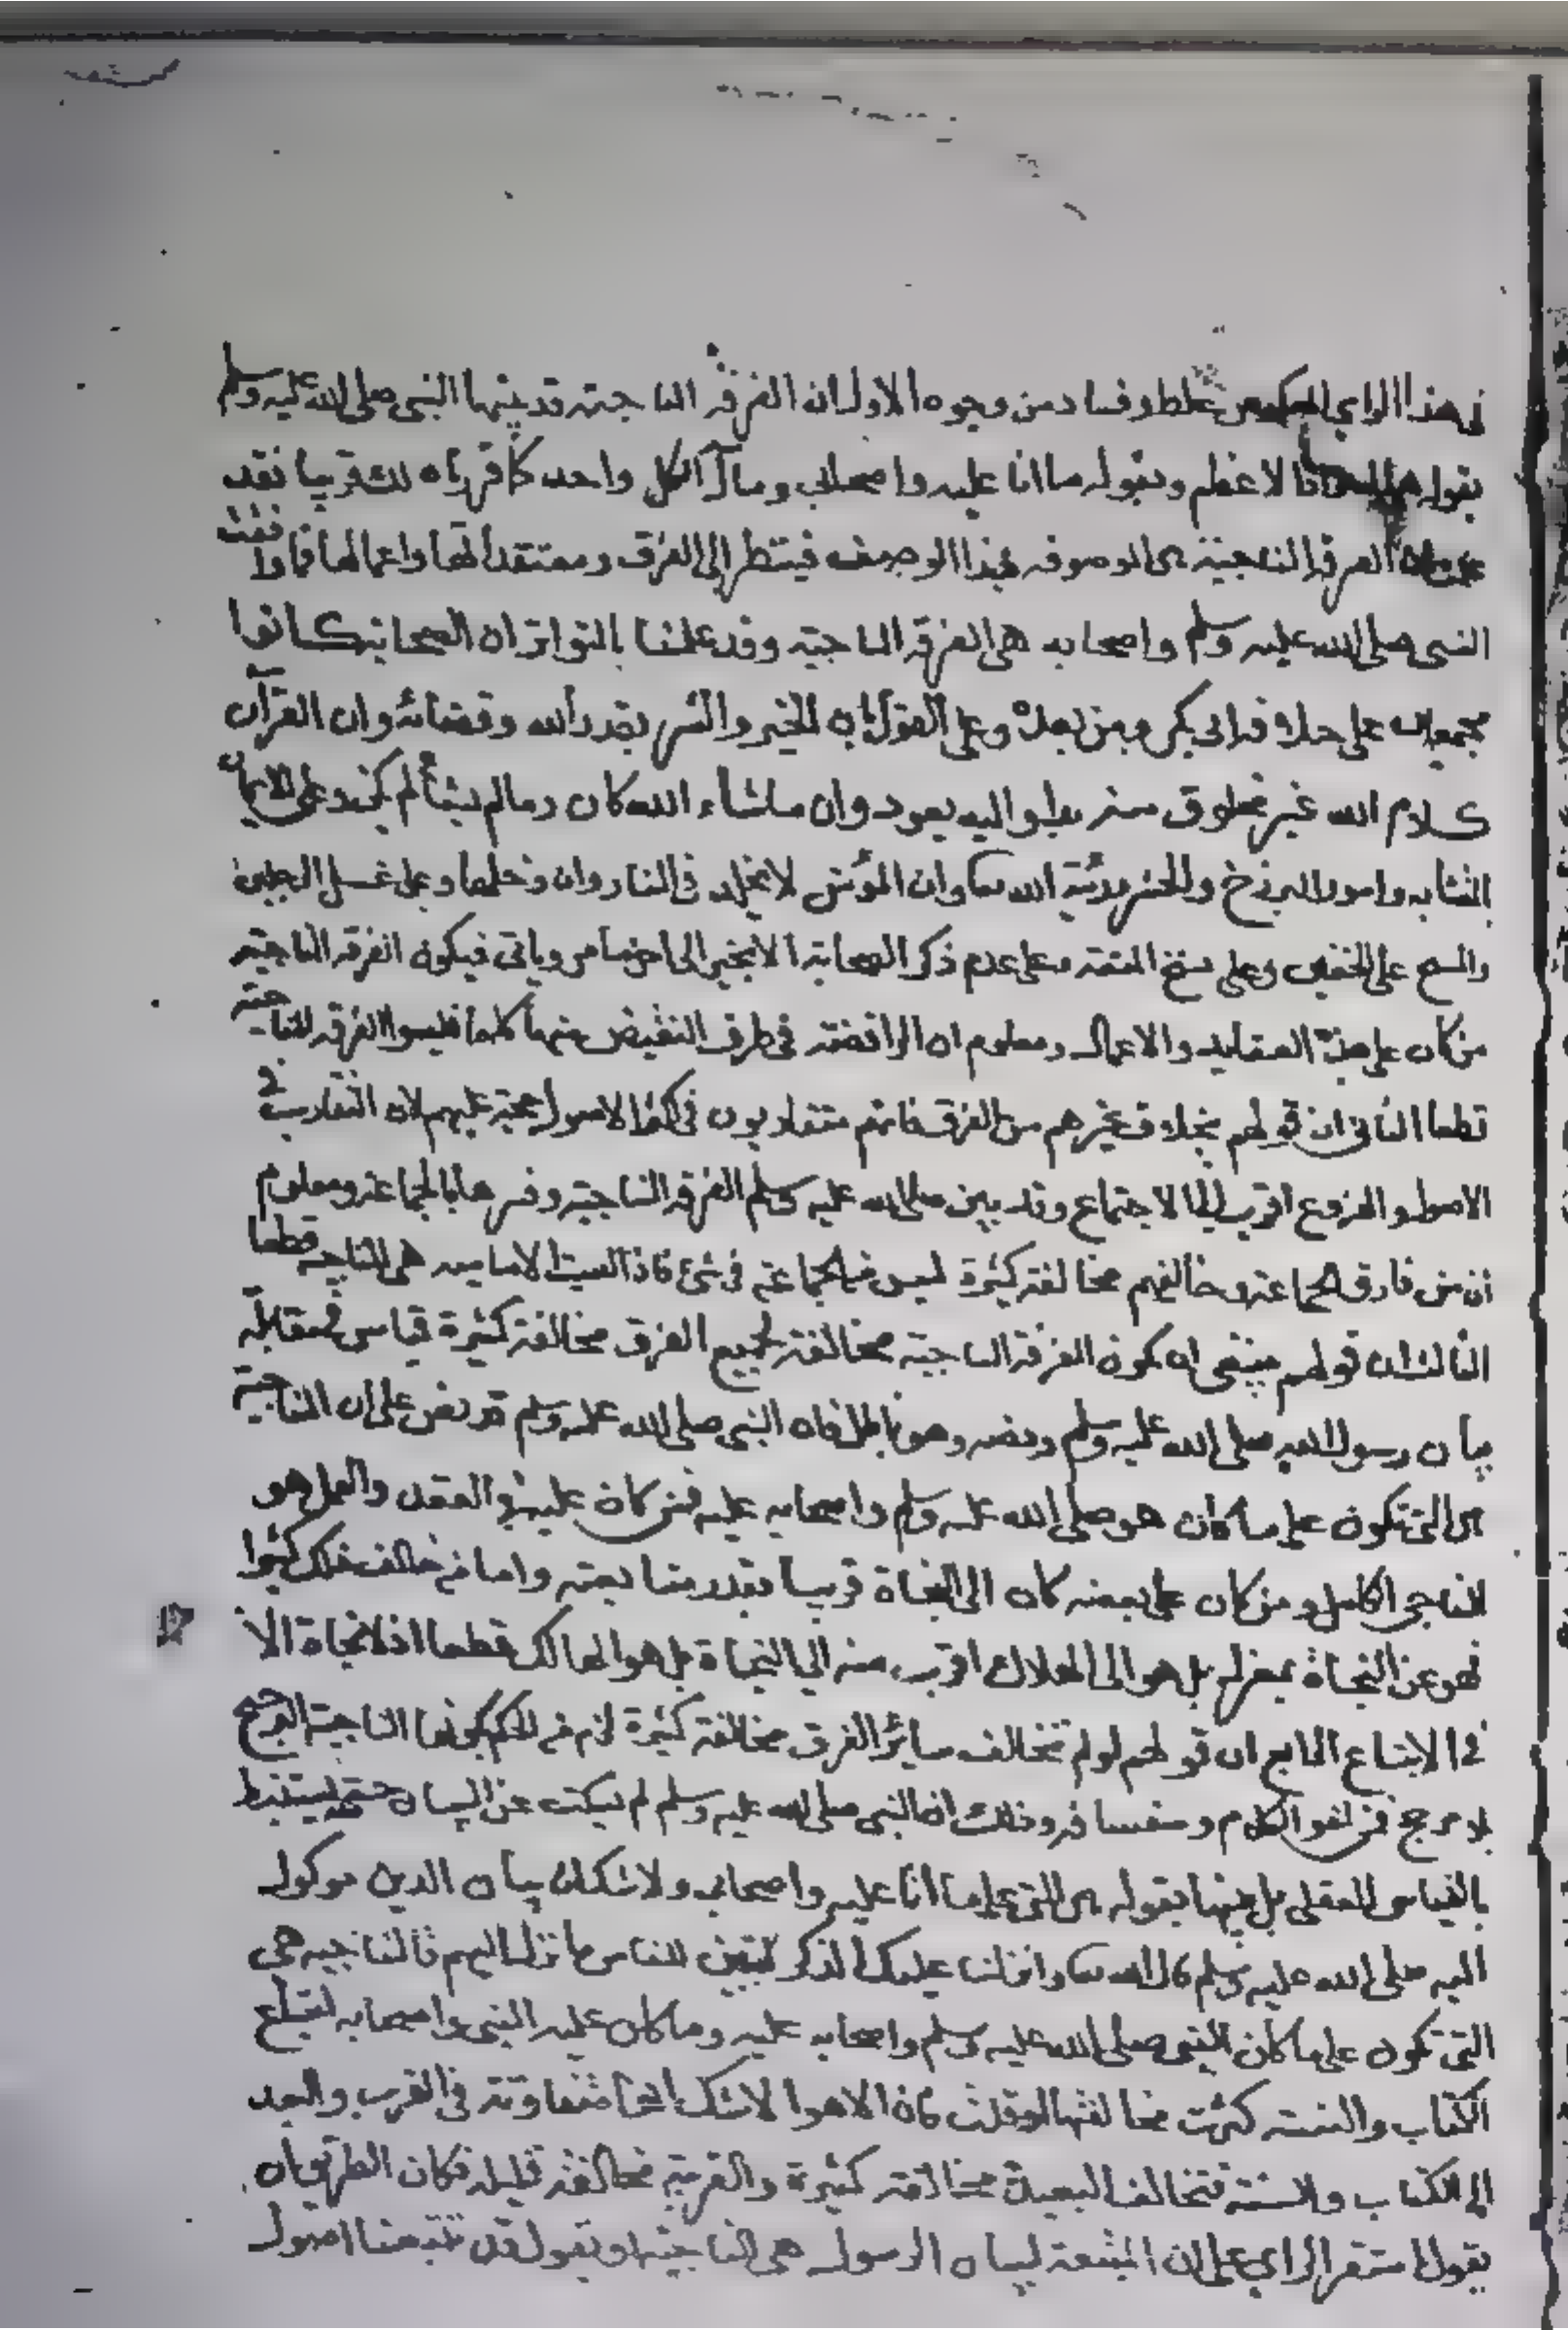 في هذا الراي المعكوس غلط وفساد من وجوه الاول ان الفرقة الناجية قد بينها النبي صلى الله عليه وسلم
بقوله الاعظم وبقوله ما انا عليه واصحابي ومآل الكل واحد كما قررناه لك قريبا فقد
الفرقة الناجية هي الموصوفه بهذا الوصف فينظر الى الفرق ومعتقداتها واعمالها فما وافقت
النبي صلى الله عليه وسلم واصحابه هي الفرقة الناجية وقد علمنا بالتواتر ان الصحابة كانوا
مجمعين على خلافة ابي بكر ومن بعده وعلى القول بان الخير والشر بقدر الله وقضائه وان القرآن
كلام الله غير مخلوق منه بدا واليه يعود وان ما شاء الله كان وما لم يشأ لم يكن وعلى الايمان
المتشابه وامور البرزخ والحشر ورؤية الله تعا وان المؤمن لا يخلد في النار وان دخلها وعلى غسل الرجلين
والمسح على الخفين وعلى نسخ المتعة وعلى عدم ذكر الصحابة الا بخير الى اخر ما مر وياتي فيكون الفرقة الناجية
من كان على هذه العقايد والاعمال ومعلوم ان الرافضة في طرف النقيض منها كلها فليسوا الفرقة الناجية
قطعا الثاني ان قولهم بخلاف غيرهم من الفرق فانهم متقاربون في اكثر الاصول حجة عليهم لان التقارب في
الاصول والفروع اقرب الى الاجتماع وقد بين صلى الله عليه وسلم الفرقة الناجية وفسرها بالجماعة ومعلوم
ان من فارق الجماعة وخالفهم مخالفة كثيرة ليس من الجماعة في شئ فاذا ليست الامامية هي الناجية قطعا
الثالث ان قولهم ينبغي ان يكون الفرقة الناجية مخالفة لجميع الفرق مخالفة كثيرة قياس في مقابلة
بيان رسول الله صلى الله عليه وسلم ونصه وهو باطل فان النبي صلى الله عليه وسلم قد نص على ان الناجية
هي التي تكون على ما كان هو صلى الله عليه وسلم واصحابه عليه فمن كان عليه في العقد والعمل هو
الناجي الكامل ومن كان على بعضه كان الى النجاة قريبا بقدر متابعته واما من خالف ذلك كثيرا
فهو عن النجاة بمعزل بل هو الى الهلاك اقرب منه الى النجاة بل هو الهالك قطعا اذ لا نجاة الا
في الاتباع الرابع ان قولهم لو لم تخالف سائر الفرق مخالفة كثيرة لزم من الحكم بكونها الناجية الترجيح
بلا مرجح فمن لغو الكلام و وذلك ان النبي صلى الله عليه وسلم لم يسكت عن البيان حتى يستنبط
بالقياس العقلي بل بينها بقوله هي التي على ما انا عليه واصحابي ولا شك ان بيان الدين موكول
اليه صلى الله عليه وسلم قال الله تعا وانزلنا عليك الذكر لتبين للناس ما نزل اليهم فالناجية هي
التي تكون على ما كان النبي صلى الله عليه وسلم واصحابه عليه وما كان عليه النبي واصحابه
الكتاب والسنة كثرت مخالفتها او قلت فان الاهوا لا شك انها متفاوتة في القرب والبعد
الى الكتاب والسنة فتخالف البعيدة مخالفة كثيرة والقريبة مخالفة قليلة فكان الطريق ان
يقول استقر الراي على ان المتبعة لبيان الرسول هي الناجية او يقول قد تتبعنا اصول